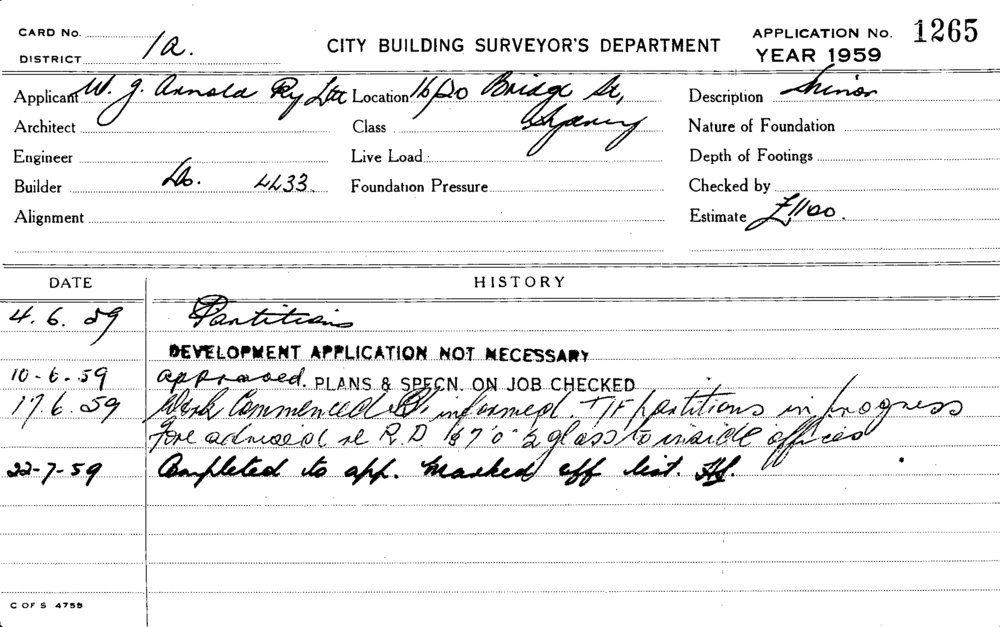 CARD No.
APPLICATION No. 1265
DISTRICT 1a.
CITY BUILDING SURVEYOR'S DEPARTMENT
YEAR 1959
Applicant W. J. Arnold Pty Ltd Location 16/20 Bridge St, Description Minor
Architect Class Sydney Nature of Foundation
Engineer Live Load Depth of Footings
Builder Do. LL33. Foundation Pressure Checked by
Alignment Estimate £1100.
DATE HISTORY
4.6.59 Partitions
DEVELOPMENT APPLICATION NOT NECESSARY
10-6-59 approved. PLANS & SPECN. ON JOB CHECKED
17.6.59 Work Commenced informed. T/F partitions in progress
advised re R.D 7'0" glass to inside offices
22-7-59 Completed to app. Marked off list.
C OF S 4759